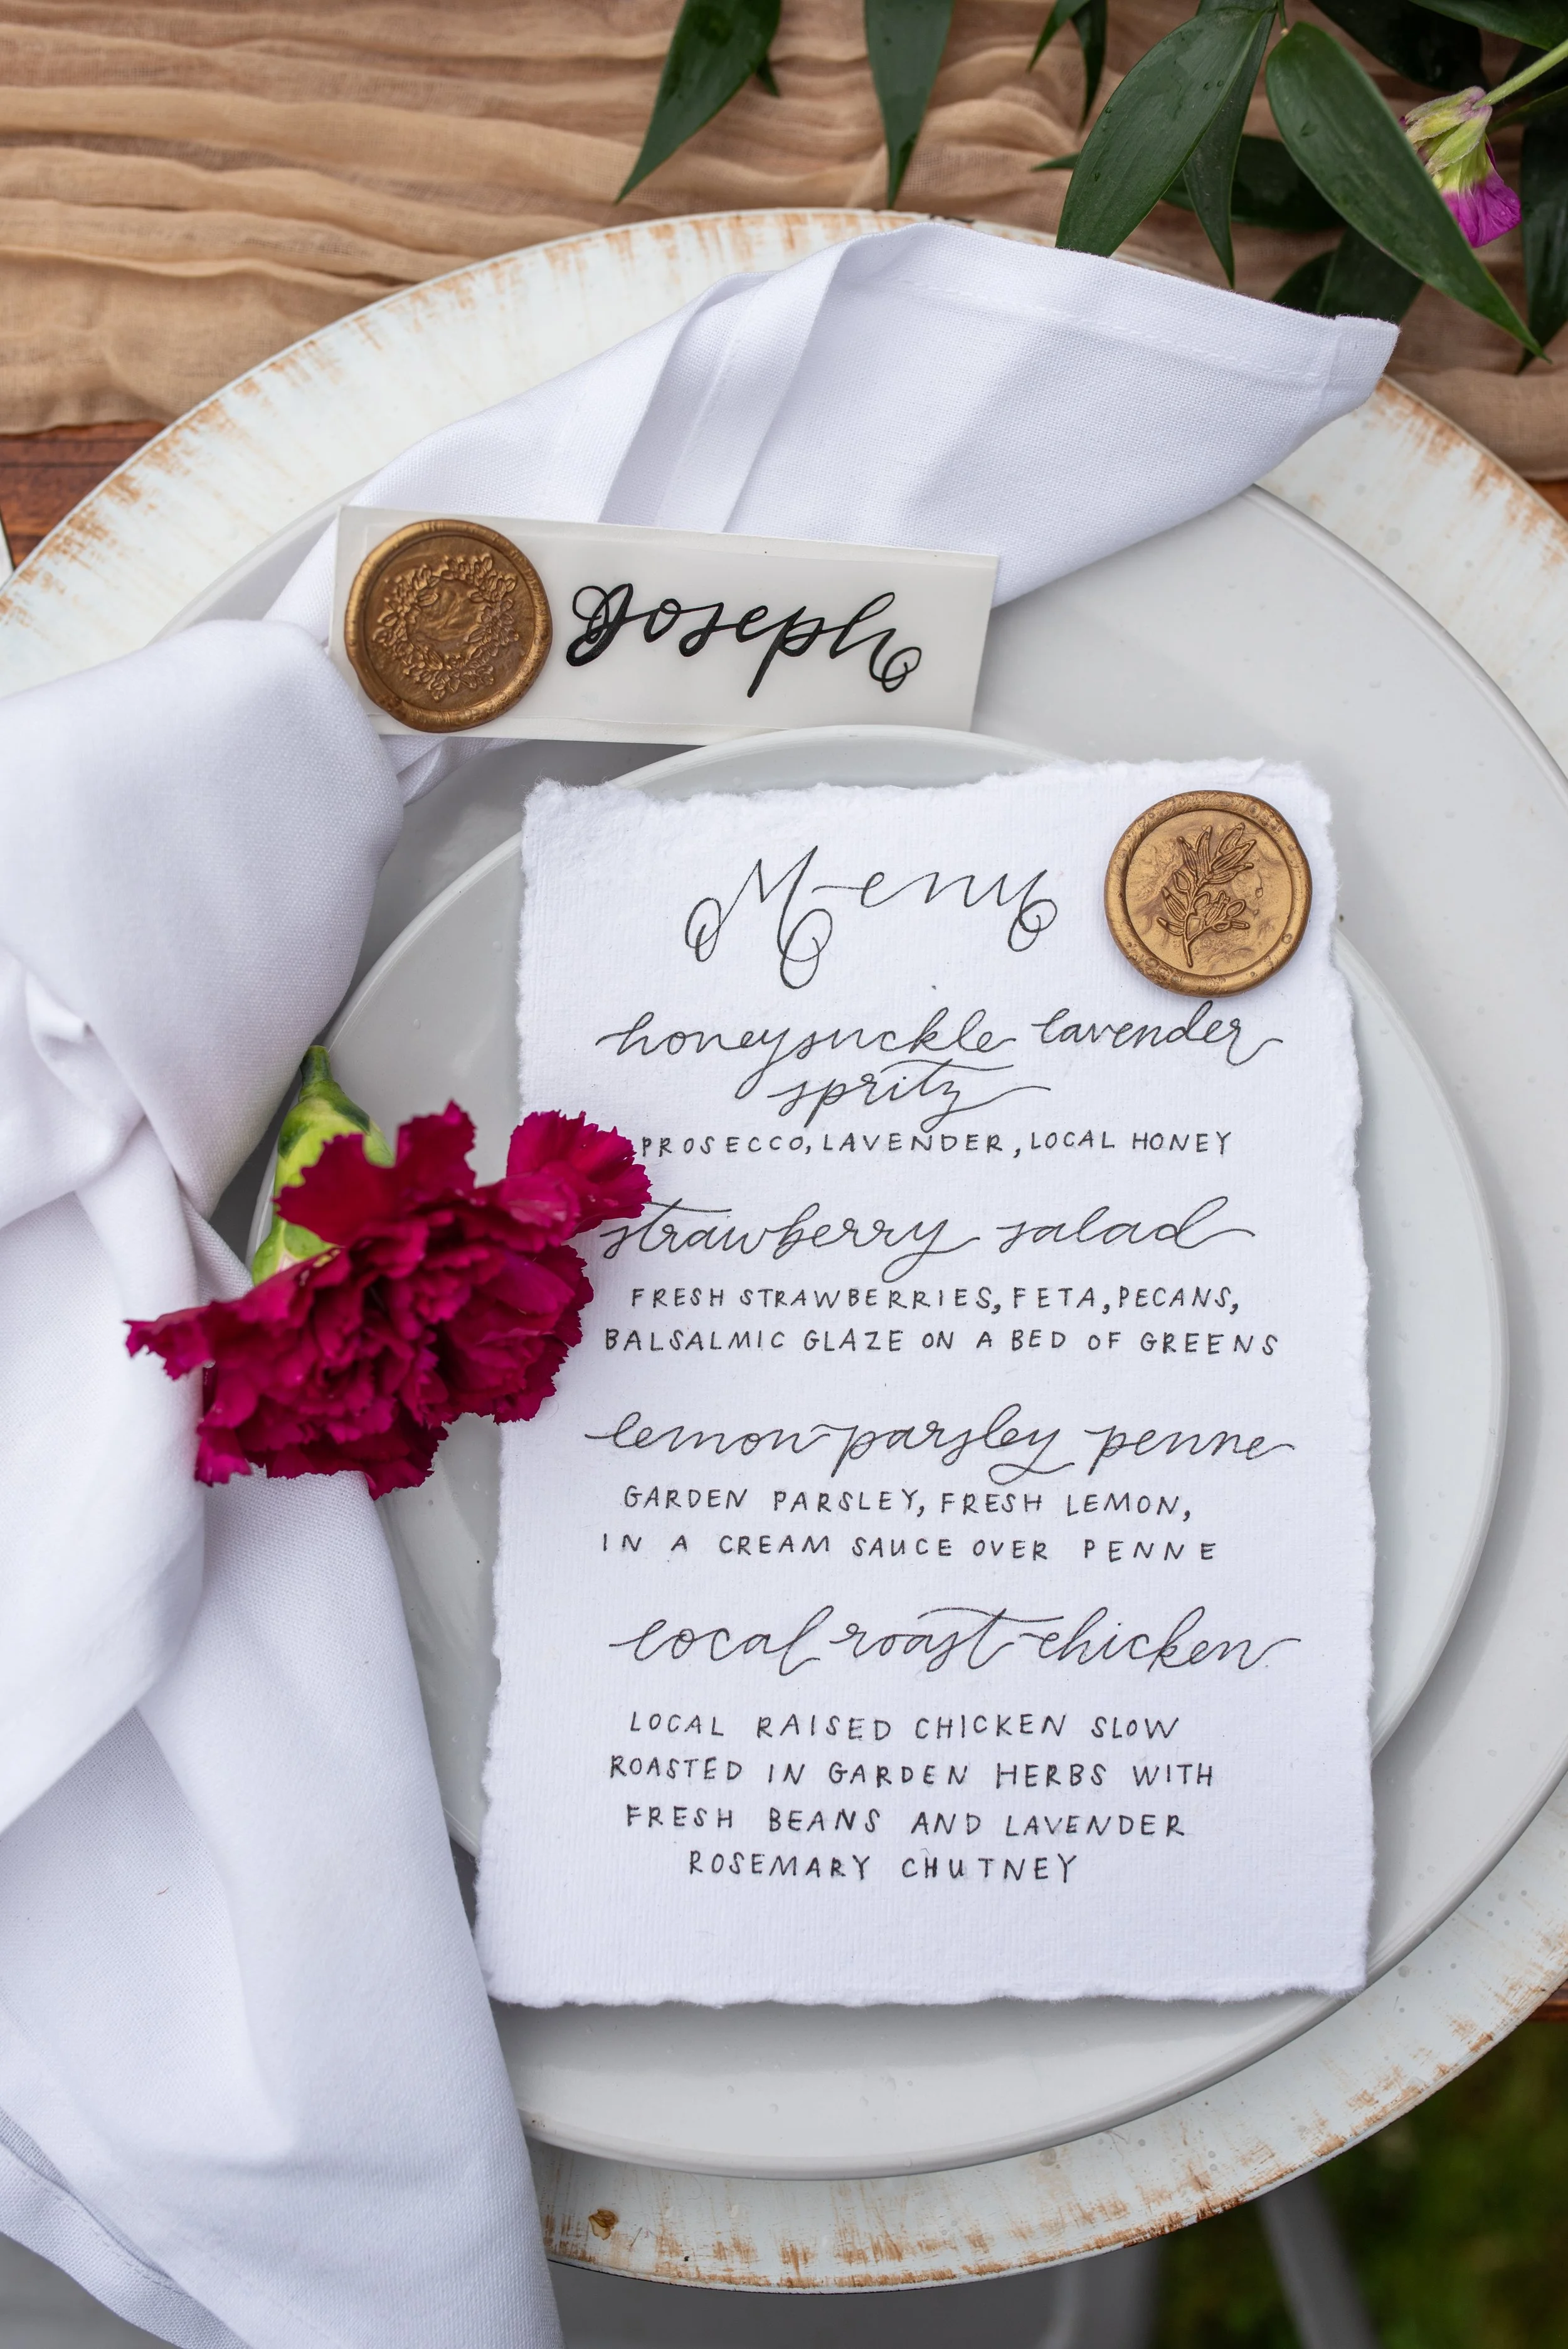 Joseph
Menu
honeysuckle lavender
spritz
PROSECCO, LAVENDER, LOCAL HONEY
strawberry salad
FRESH STRAWBERRIES, FETA, PECANS,
BALSALMIC GLAZE ON A BED OF GREENS
lemon parsley penne
GARDEN PARSLEY, FRESH LEMON,
IN A CREAM SAUCE OVER PENNE
local roast chicken
LOCAL RAISED CHICKEN SLOW
ROASTED IN GARDEN HERBS WITH
FRESH BEANS AND LAVENDER
ROSEMARY CHUTNEY